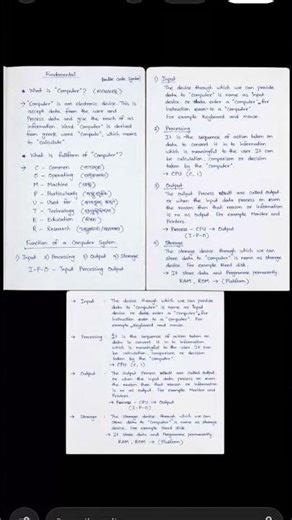 Fundamental
* What is "Computer"?
→ "Computer" is an electronic device. This is
accept data from the user and
Process data and give the result of as
information. Word "Computer" is derived
from greek word "Compute", which means
to "calculate".
* What is fullform of "Computer"?
→ C - Common
O - Operating
M - Machine
P - Particularly
U - Used for
T - Technology
E - Education
R - Research
Function of a Computer System
1) Input 2) Processing 3) Output 4) Storage
I-P-O - Input Processing Output
1) Input
The device through which we can provide
data to "computer" is name as Input
device or data enter a "computer" for
instruction even to a "computer".
For example Keyboard and mouse.
2) Processing
It is the sequence of action taken on
data to convert it in to information
which is meaningful to the user. It can
be calculation, comparison or decision
taken by the "computer".
→ CPU
3) Output
The output Process result are called output
or when the input data process on even
the reason then that reason or information
is no as output. For example Monitor and
Printers.
→ Process - CPU → Output
(I-P-O)
4) Storage
The storage device through which we can
store data to "Computer" is name as storage
device. For example Hard disk
→ It store data and Programme permanently.
RAM, ROM → (Platform)
→ Input :
The device through which we can provide
data to "computer" is name as Input
device or data enter a "computer" for
instruction even to a "computer". For
example Keyboard and mouse.
→ Processing :
It is the sequence of action taken on
data to convert it in to information
which is meaningful to the user. It can
be calculation, comparison or decision
taken by the "computer".
→ CPU
→ Output :
The output Process result are called output
or when the input data process on even
the reason then that reason or information
is no as output. For example Monitor
and Printers.
→ Process - CPU → Output
(I-P-O)
→ Storage :
The storage device through which we can
store data to "Computer" is name as storage
device. For example Hard disk
→ It store data and Programme permanently.
RAM, ROM → (Platform)